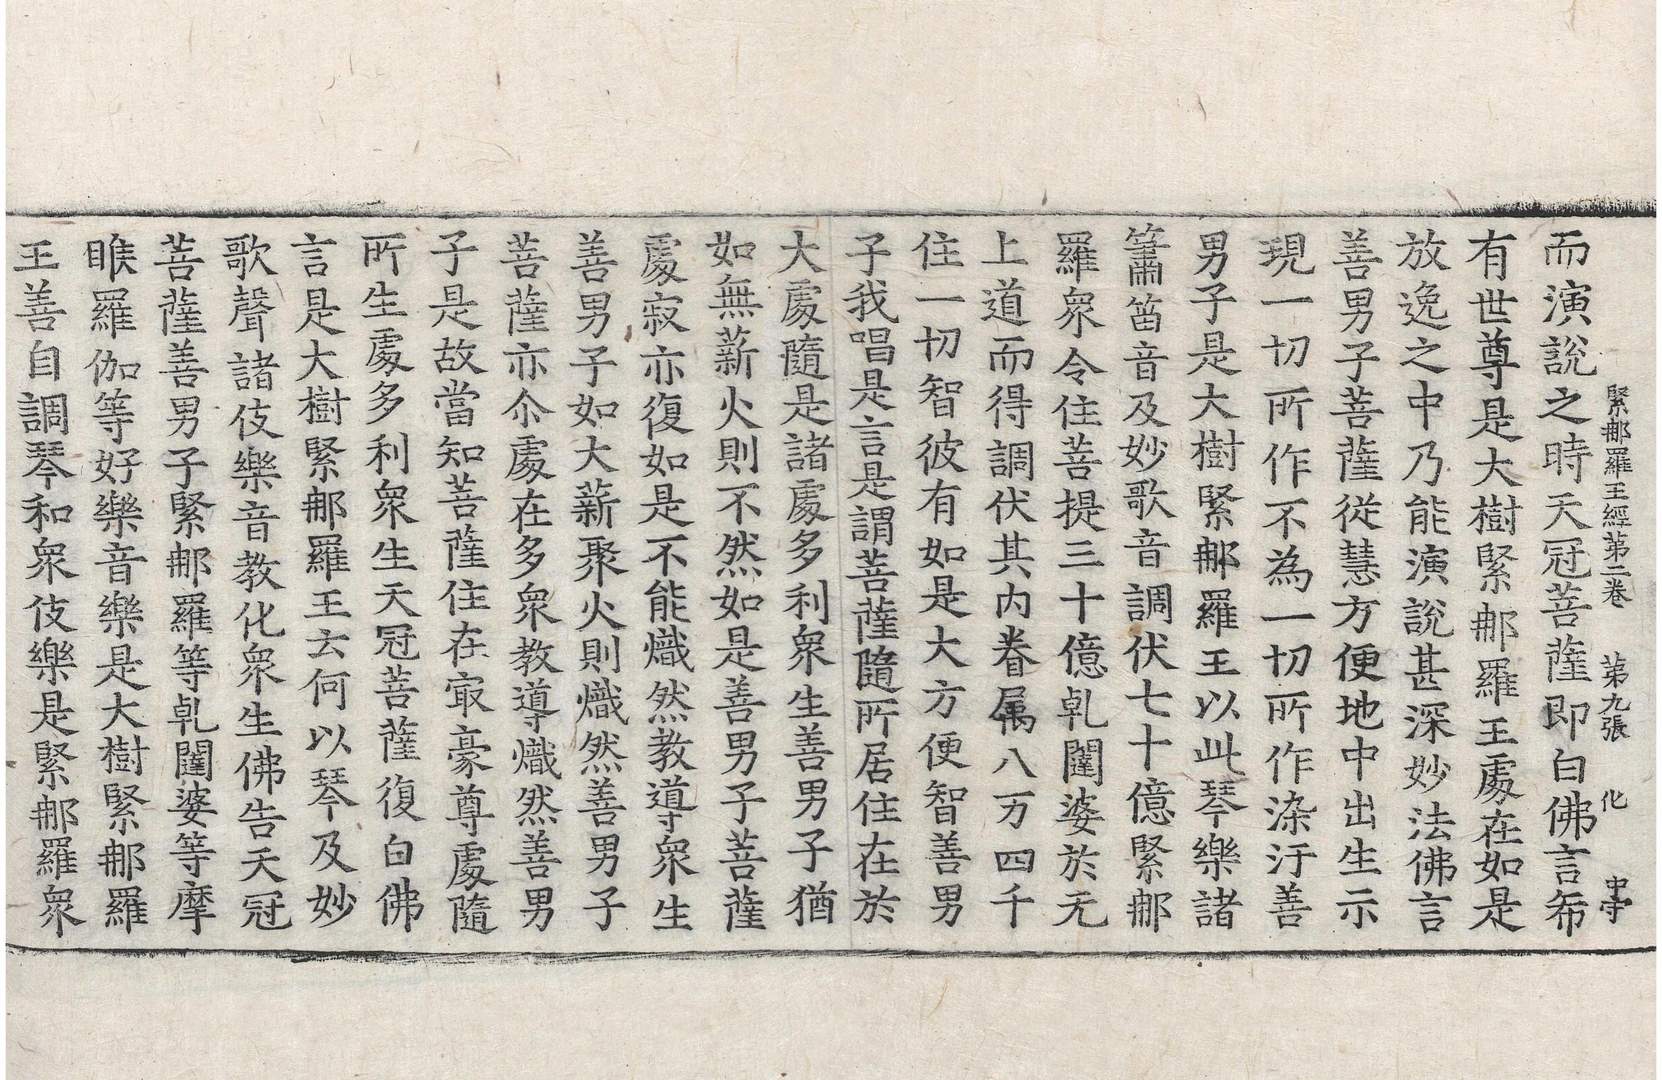 緊那羅王經第二卷 第九張 化 中守
而演說之時天冠菩薩即白佛言希
有世尊是大樹緊那羅王處在如是
放逸之中乃能演說甚深妙法佛言
善男子菩薩從慧方便地中出生示
現一切所作不為一切所作染汙善
男子是大樹緊那羅王以此琴樂諸
簫笛音及妙歌音調伏七十億緊那
羅眾令住菩提三十億乹闥婆於无
上道而得調伏其內眷属八万四千
住一切智彼有如是大方便智善男
子我唱是言是謂菩薩隨所居住在於
大處隨是諸處多利眾生善男子猶
如無薪火則不然如是善男子菩薩
處寂亦復如是不能熾然教導眾生
善男子如大薪聚火則熾然善男子
菩薩亦尒處在多眾教導熾然善男
子是故當知菩薩住在㝡豪尊處隨
所生處多利眾生天冠菩薩復白佛
言是大樹緊那羅王云何以琴及妙
歌聲諸伎樂音教化眾生佛告天冠
菩薩善男子緊那羅等乹闥婆等摩
睺羅伽等好樂音樂是大樹緊那羅
王善自調琴和眾伎樂是緊那羅眾